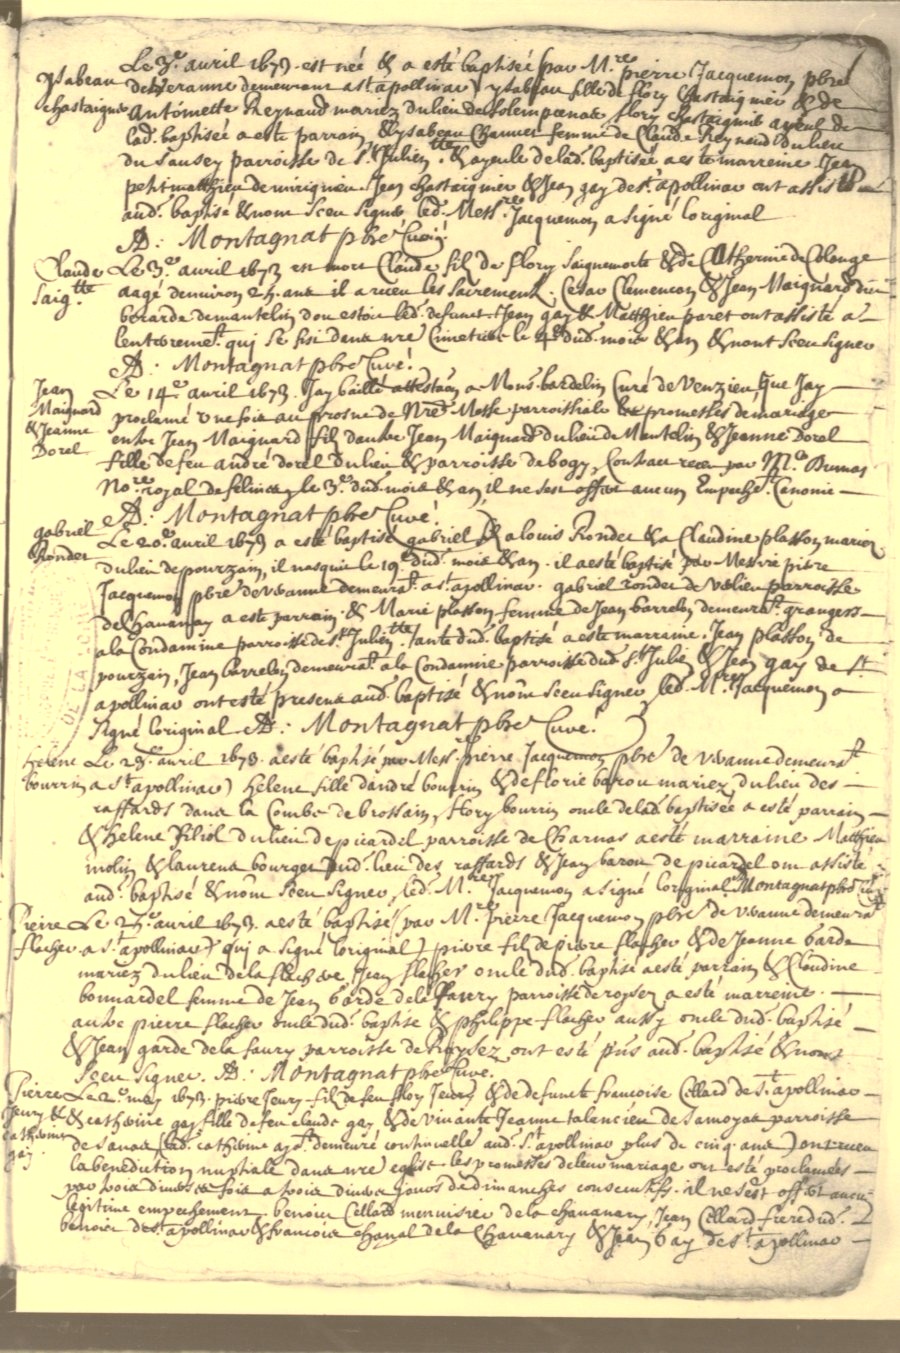 Ysabeau
chastaignier
Le 3e. avril 1673. est née & a esté baptisée (par Mre. pierre Jacquemon pbre
de Veranne demeurant a st. apollinar) ysabeau fille de flory Chastaignier & de
Antoinette Reynaud mariez du lieu de flory chastaignier ayeul de
lad. baptisée a esté parrain & ysabeau Channier femme de Claude Reynaud du lieu
du Sausey parroisse de St. Julien & ayeule de lad. baptisée a esté marreine Jean
petit matthieu de mirignieu Jean chastaignier & Jean gay de st. apollinar ont assisté
aud. baptisé & nont sceu signer led. Messre. Jacquemon a signé loriginal
A: Montagnat pbre Curé
Claude
Saigtte
Le 3e. avril 1673 est mort Claude fils de flory Saignemorte & de Catherine de Colonge
aagé denviron 25. ans il a receu les sacrements. Cesar Clemencon & Jean Maignard di
berarde de mantelin dou estoit led. defunct. Jean gay & Matthieu paret ont assisté a
lenterrement. qui se fist dans nre Cimetiere le 4e dud. mois & an & nont sceu signer
A: Montagnat pbre Curé.
Jean
Maignard
& Jeanne
Dorel
Le 14e. avril 1673. Jay baillé attestaon a Mons. bardelin Curé de Venzieu, que Jay
proclamé une fois au prosne de Nre. Messe parroissiale les promesses de mariage
entre Jean Maignard fils dautre Jean Maignard du lieu de Mantelin & Jeanne Dorel
fille de feu andré Dorel du lieu & parroisse de bogy, Contract receu par Me. Dumas
Nore. royal de felines, le 3e. dud. mois & an, il ne sest offert aucun Empeschet. Canonic
A: Montagnat pbre Curé.
gabriel
Rondet
Le 20e. avril 1673 a esté baptisé gabriel) a louis Rondet & a Claudine plasson mariez
du lieu de pourzain, il nasquit le 19e. dud. mois & an. il a esté baptisé par Messire pierre
Jacquemon pbre de Veranne demeurat. a st. apollinar. gabriel rondet de parroisse
de Chavanay a esté parrain & Marie plasson femme de Jean barrelon demeurat. grangers
a la Condamine parroisse de St. Julien tante dud. baptisé a esté marraine. Jean plasson de
pourzain, Jean barrelon demeurat. a la Condamine parroisse dud. St. Julien & Jean gay de st.
apollinar ont esté presens aud. baptisé & nont sceu signer led. Mre. Jacquemon a
signé loriginal A: Montagnat pbre Curé.
helene
bourrin
Le 23e. avril 1673. a esté baptisé par Messre. pierre Jacquemon pbre de Veranne demeurat.
a st. apollinar) helene fille dandré bourrin & de florie barou mariez du lieu des
raffards dans la Combe de brossain, flory bourrin oncle de lad. baptisée a esté parrain
& helene Filiol du lieu de picardel parroisse de Charnas a esté marraine Matthieu
molin & laurens bourget dud. lieu des raffards & Jean barou de picardel ont assisté
aud. baptisé & nont sceu signer, led. Mre. Jacquemon a signé loriginal A: Montagnat pbre
Pierre
flacher
Le 25e. avril 1673. a esté baptisé (par Mre. pierre Jacquemon pbre de Veranne demeurat
a st. apollinar) qui a signé loriginal) pierre fils de pierre flacher & de Jeanne barde
mariez du lieu de la flechere Jean flacher oncle dud. baptisé a esté parrain & Claudine
bonnardel femme de Jean barde de la favery parroisse de roysez a esté marreine.
autre pierre flacher oncle dud. baptisé & philippe flacher aussy oncle dud. baptisé
& Jean garde de la faury parroisse de Roysez ont esté pnts aud. baptisé & nont
sceu signer. A: Montagnat pbre Curé.
Pierre
Jeury &
catherine
gay
Le 2e. may 1673. pierre Jeury fils de feu flory Jeury & de defuncte francoise Cellard de St. apollinar
& catherine gay fille de feu claude gay & de vivante Jeanne talencieu de Samoyas parroisse
de Savas (lad. catherine ayt. demeuré continuelle aud. St. apollinar plus de cinq ans) ont receu
la benediction nuptiale dans nre eglise les promesses de leur mariage ont esté proclamées
par trois diverses fois a trois divers jours de dimanches consecutifs. il ne sest offert aucun
legitime empechement. benoict Cellard menuisier de la chavanary, Jean Cellard frere dud.
benoict de st. apollinar & francois chanal de la Chavanary & Jean Gay de st. apollinar